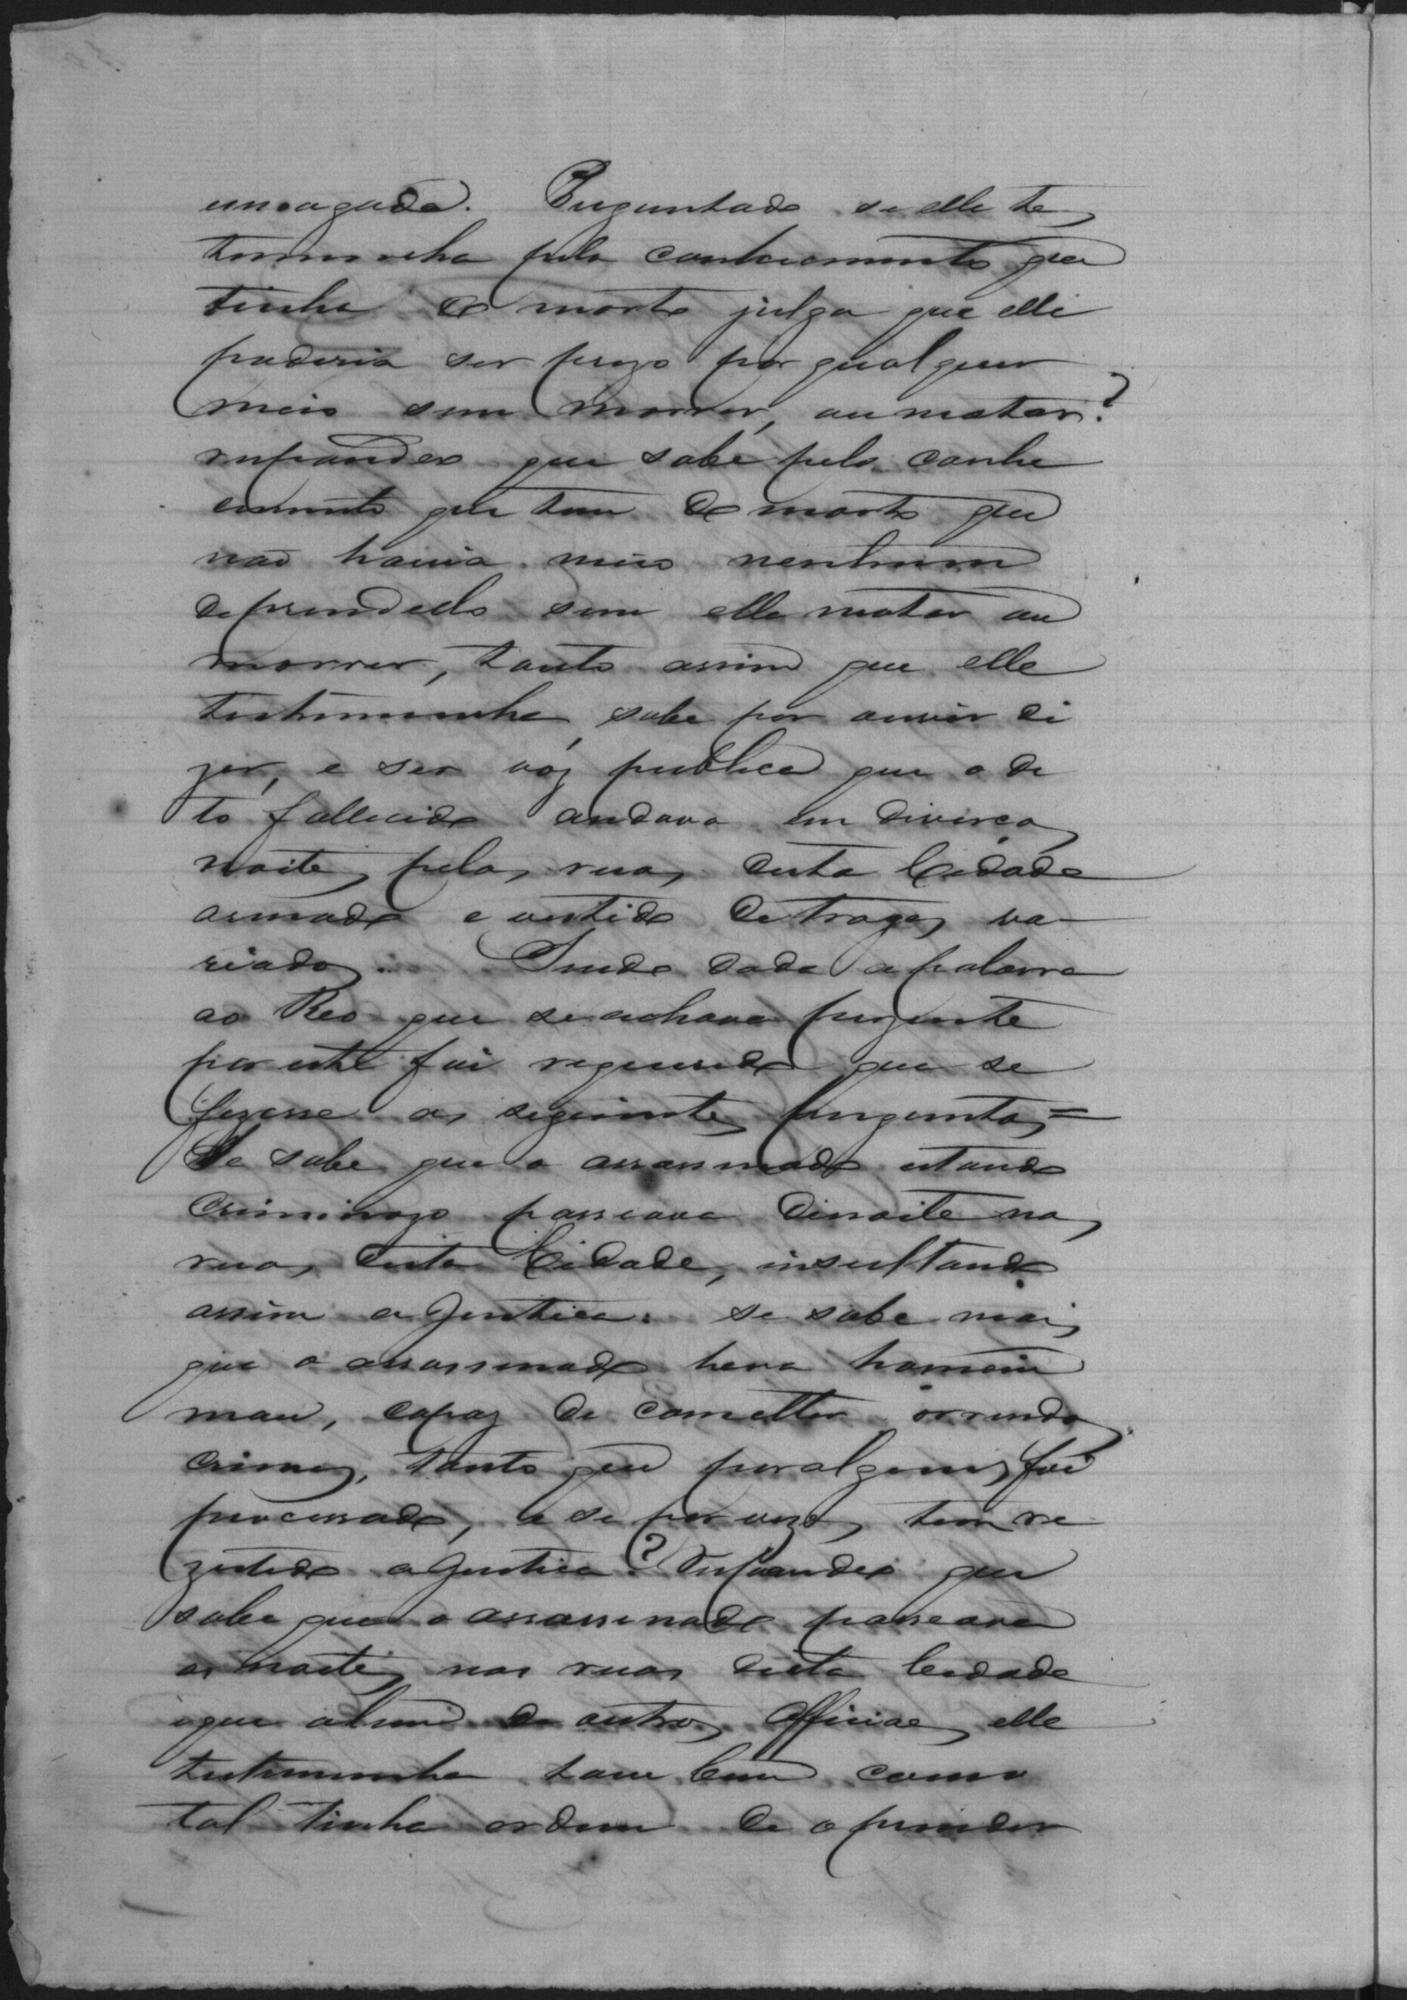 Perguntado se elle tes
temunha pelo conhecimento que
tinha do morto julga que elle
poderia ser prezo por qualquer
meio sem morrer, ou matar?
respondeo que sabe pelo conhe
cimento que tem do morto que
não havia meio nenhum
de prendello sem elle matar ou
morrer, tanto assim que elle
testemunha sabe por ouvir di
zer, e ser vóz publica que o di
to fallecido andava em diverças
noites pelas ruas desta Cidade
armado e vestido de trages va-
riados. Sendo dada a palavra
ao Reo que se achava prezente
por este foi requerido que se
fizesse as seguintes preguntas=
Se sabe que o assassinado estando
criminozo passeava denoite nas
ruas desta Cidade, insultando
assim a Justica: se sabe mais
que o assassinado hera homem
mau, capaz de cometter orrendos
crimes, tanto que por alguns foi
processado, e se por vezes tem re
zistido a Justica? Respondeo que
sabe que o assassinado passeava
as noites nas ruas desta Cidade
e que alem de outros Officiaes elle
testemunha tam bem como
tal tinha ordem de o prender